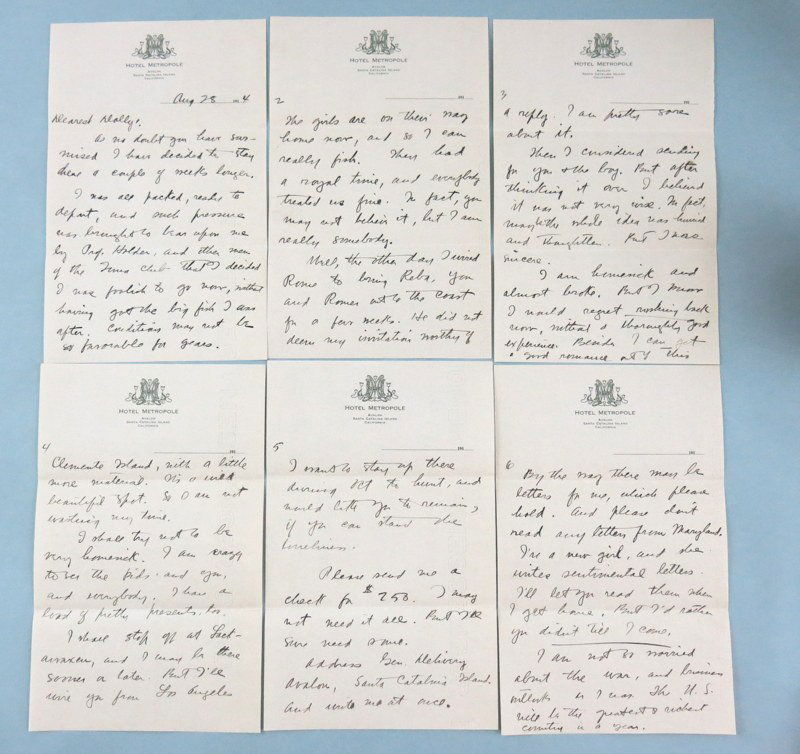 HOTEL METROPOLE
AVALON
SANTA CATALINA ISLAND
CALIFORNIA
Aug 28 1914
Dearest Dolly:
As no doubt you have sur-
mised I have decided to stay
here a couple of weeks longer.
I was all packed, ready to
depart, and such pressure
was brought to bear upon me
by Prof. Holder, and other men
of the Tuna Club that I decided
I was foolish to go now, without
having got the big fish I was
after. Conditions may not be
so favorable for years.
HOTEL METROPOLE
AVALON
SANTA CATALINA ISLAND
CALIFORNIA
2 191
The girls are on their way
home now, and so I can
really fish. They had
a royal time, and everybody
treated us fine. In fact, you
may not believe it, but I am
really somebody.
Well, the other day I wired
Rome to bring Reba, you
and Romer out to the coast
for a few weeks. He did not
deem my invitation worthy of
HOTEL METROPOLE
AVALON
SANTA CATALINA ISLAND
CALIFORNIA
3 191
a reply. I am pretty sore
about it.
Then I considered sending
for you & the boy. But after
thinking it over I believed
it was not very wise. In fact,
maybe the whole idea was hurried
and thoughtless. But I was
sincere.
I am homesick and
almost broke. But I know
I would regret rushing back
now, without a thoroughly good
experience. Beside I can get
a good romance out of this
HOTEL METROPOLE
AVALON
SANTA CATALINA ISLAND
CALIFORNIA
4 191
Clemente Island, with a little
more material. It's a wild
beautiful spot. So I am not
wasting my time.
I shall try not to be
very homesick. I am crazy
to see the kids and you,
and everybody. I have a
load of pretty presents, too.
I shall stop off at Lack-
awaxen, and I may be there
sooner or later. But I'll
wire you from Los Angeles
HOTEL METROPOLE
AVALON
SANTA CATALINA ISLAND
CALIFORNIA
5 191
I want to stay up there
during Oct to hunt, and
would like you to remain,
if you can stand the
loneliness.
Please send me a
check for $250. I may
not need it all. But I'll
sure need some.
Address Gen. Delivery
Avalon, Santa Catalina Island.
and write me at once.
HOTEL METROPOLE
AVALON
SANTA CATALINA ISLAND
CALIFORNIA
6 191
By the way there may be
letters for me, which please
hold. And please don't
read any letters from Maryland.
I've a new girl, and she
writes sentimental letters.
I'll let you read them when
I get home. But I'd rather
you didn't till I come.
I am not so worried
about the war, and business
outlook as I was. The U.S.
will be the greatest & richest
country in a year.